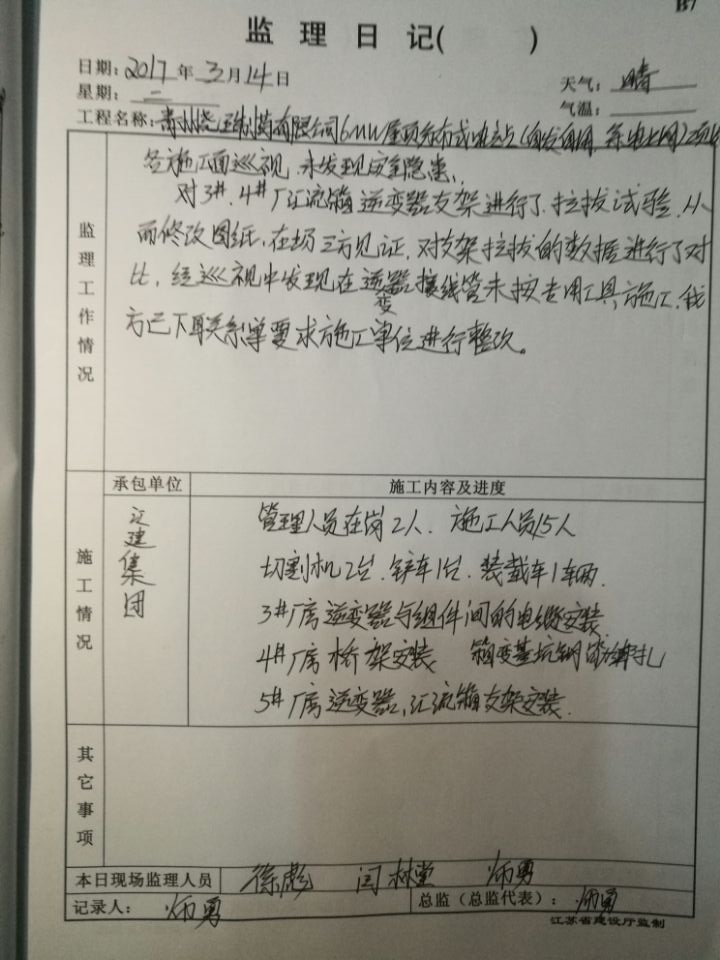 B7
监理日记( )
日期：2017年3月14日
天气：晴
星期：二
气温：
工程名称：制药有限公司6MW屋顶分布式电站点(自发自用 余电上网)项目
监理工作情况
各施工面巡视，未发现安全隐患。
对3#、4#厂汇流箱逆变器支架进行了拉拔试验，从
而修改图纸，在场三方见证，对支架拉拔的数据进行了对
比，经巡视中发现在逆变器接线管未按专用工具施工，我
方已下联系单要求施工单位进行整改。
施工情况
承包单位
施工内容及进度
建集团
管理人员在岗2人、施工人员15人
切割机2台、铲车1台、装载车1车辆
3#厂房逆变器与组件间的电缆安装
4#厂房桥架安装 箱变基坑钢筋绑扎
5#厂房逆变器，汇流箱支架安装.
其它事项
本日现场监理人员 徐彪 闫林堂 炳勇
记录人：炳勇
总监（总监代表）：炳勇
江苏省建设厅监制